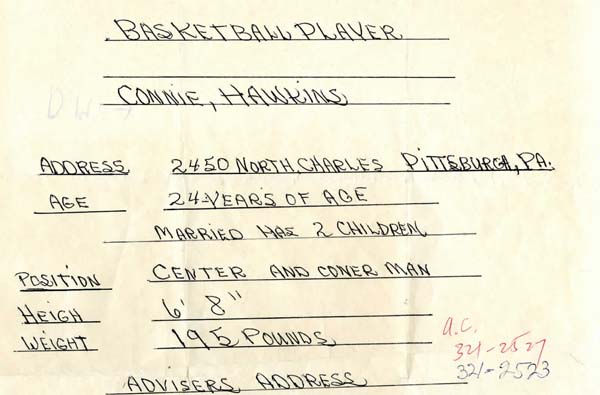 BASKETBALL PLAYER
CONNIE, HAWKINS
ADDRESS 2450 NORTH CHARLES PITTSBURGH, PA.
AGE 24 YEARS OF AGE
MARRIED HAS 2 CHILDREN
POSITION CENTER AND CONER MAN
HEIGH 6' 8"
WEIGHT 195 POUNDS
A.C.
321-2527
321-2523
ADVISERS ADDRESS